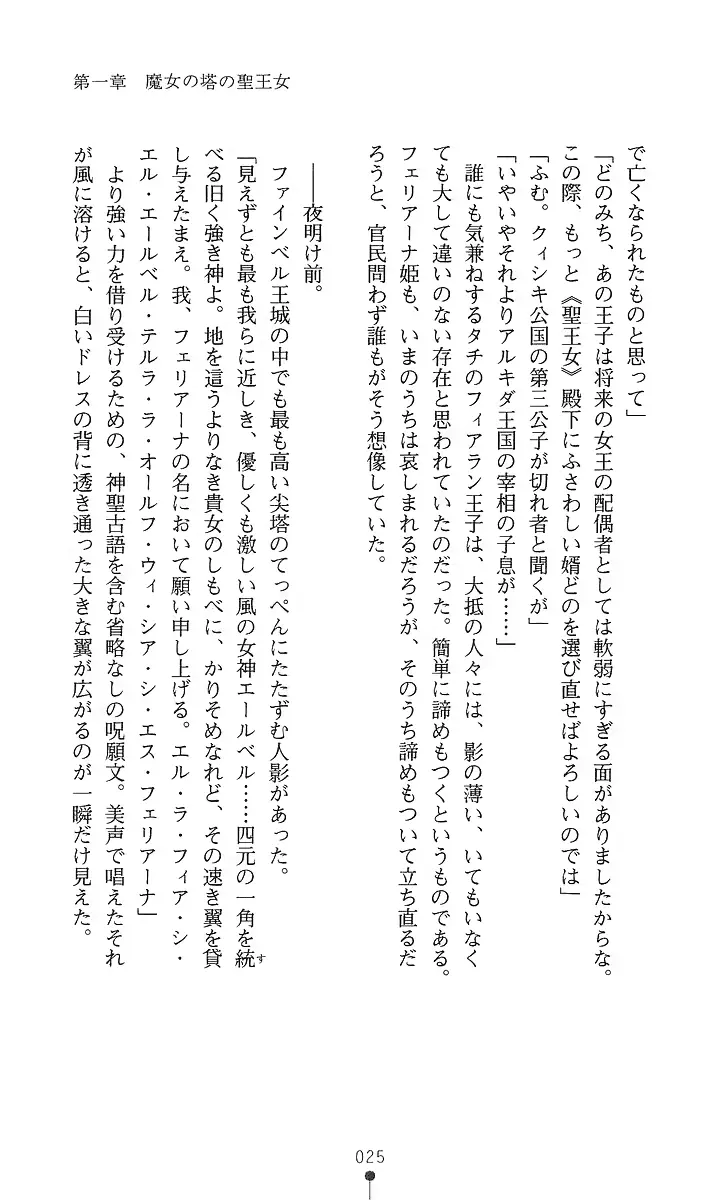 第一章　魔女の塔の聖王女
で亡くなられたものと思って」
「どのみち、あの王子は将来の女王の配偶者としては軟弱にすぎる面がありましたからな。
この際、もっと《聖王女》殿下にふさわしい婿どのを選び直せばよろしいのでは」
「ふむ。クィシキ公国の第三公子が切れ者と聞くが」
「いやいやそれよりアルキダ王国の宰相の子息が……」
　誰にも気兼ねするタチのフィアラン王子は、大抵の人々には、影の薄い、いてもいなく
ても大して違いのない存在と思われていたのだった。簡単に諦めもつくというものである。
フェリアーナ姫も、いまのうちは哀しまれるだろうが、そのうち諦めもついて立ち直るだ
ろうと、官民問わず誰もがそう想像していた。
――夜明け前。
　ファインベル王城の中でも最も高い尖塔のてっぺんにたたずむ人影があった。
「見えずとも最も我らに近しき、優しくも激しい風の女神エールベル……四元の一角を統す
べる旧く強き神よ。地を這うよりなき貴女のしもべに、かりそめなれど、その速き翼を貸
し与えたまえ。我、フェリアーナの名において願い申し上げる。エル・ラ・フィア・シ・
エル・エールベル・テルラ・ラ・オールフ・ウィ・シア・シ・エス・フェリアーナ」
　より強い力を借り受けるための、神聖古語を含む省略なしの呪願文。美声で唱えたそれ
が風に溶けると、白いドレスの背に透き通った大きな翼が広がるのが一瞬だけ見えた。
025